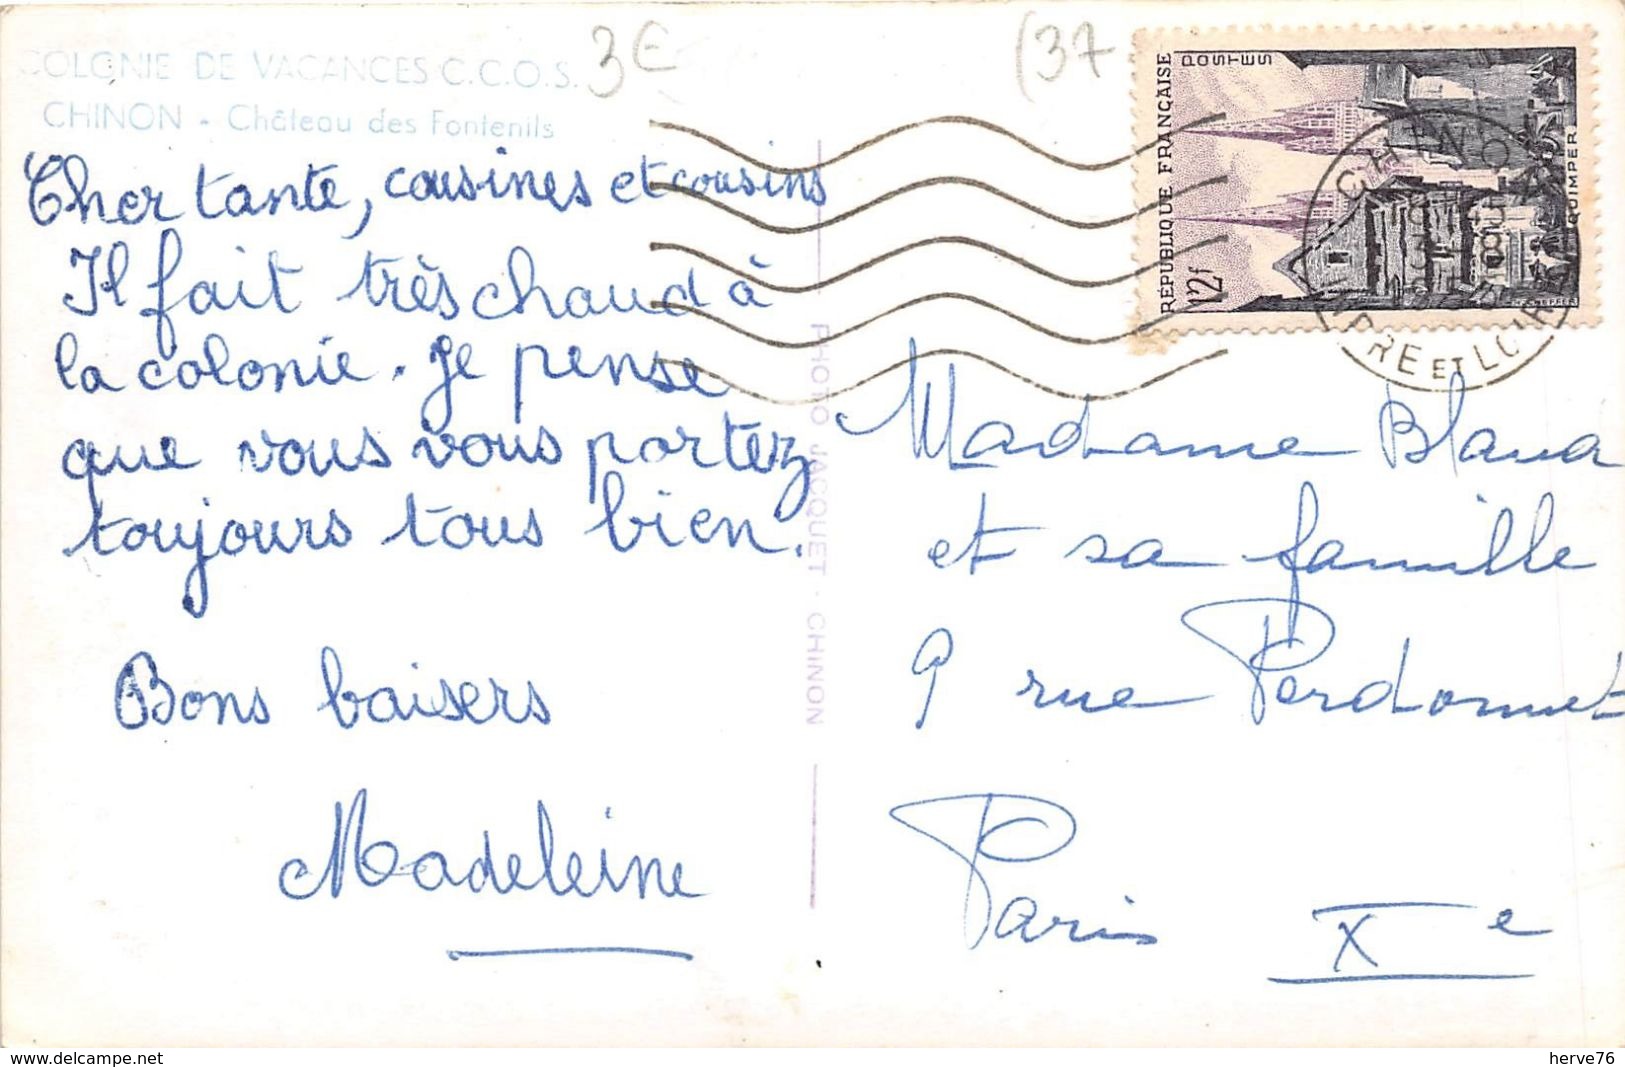 COLONIE DE VACANCES C.C.O.S.
CHINON - Château des Fontenils
3€
(37
RÉPUBLIQUE FRANÇAISE
POSTES
12f
QUIMPER
CHINON
INDRE ET LOIRE
Cher tante, cousines et cousins
Il fait très chaud à
la colonie. Je pense
que vous vous portez
toujours tous bien.
Bons baisers
Madeleine
PHOTO JACQUET - CHINON
Madame
et sa famille
9 rue Perdonnet
Paris Xe
delcampe.net
herve76